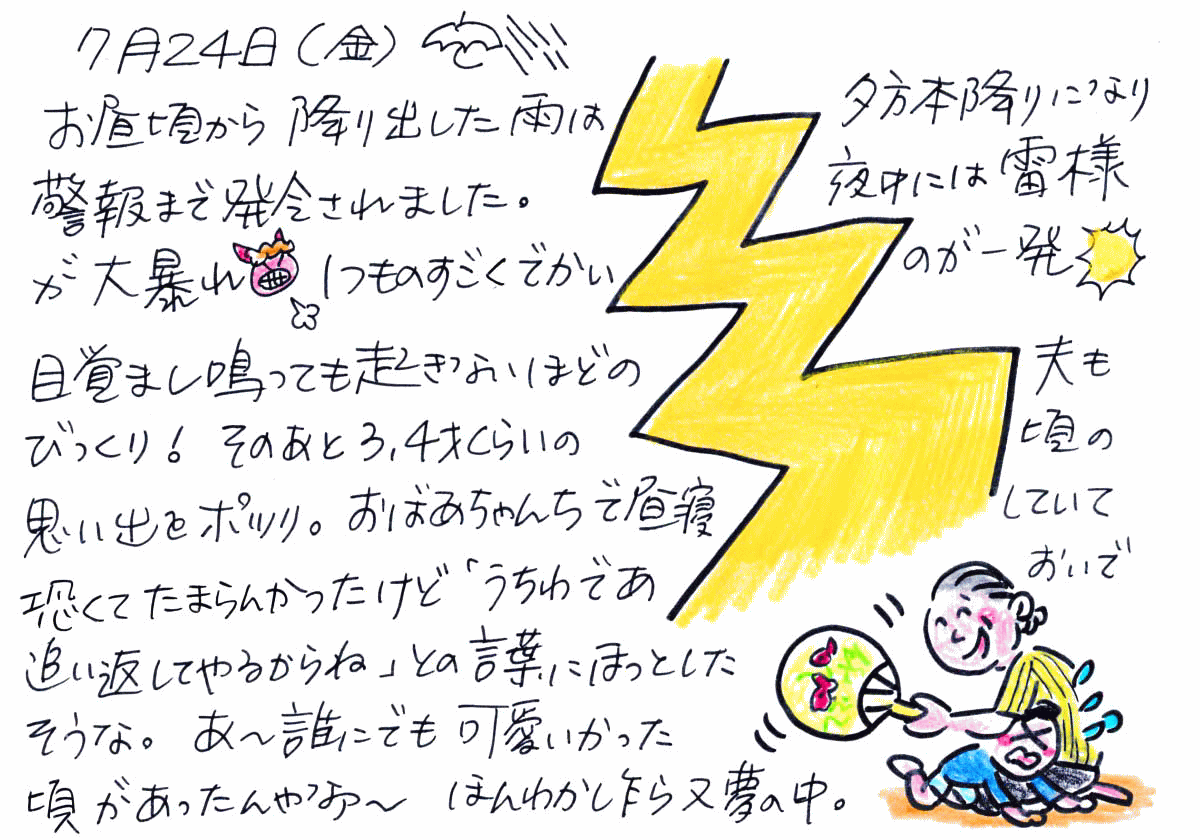 7月24日(金)
お昼頃から降り出した雨は 夕方本降りになり
警報まで発令されました。 夜中には雷様
が大暴れ 1つものすごくでかい のが一発
目覚まし鳴っても起きないほどの 夫も
びっくり! そのあと3,4才くらいの 頃の
思い出をポツリ。おばあちゃんちで昼寝 していて
恐くてたまらんかったけど「うちわであ おいで
追い返してやるからね」との言葉にほっとした
そうな。 あ〜誰にでも可愛いかった
頃があったんやなあ〜 ほんわかし乍ら又夢の中。